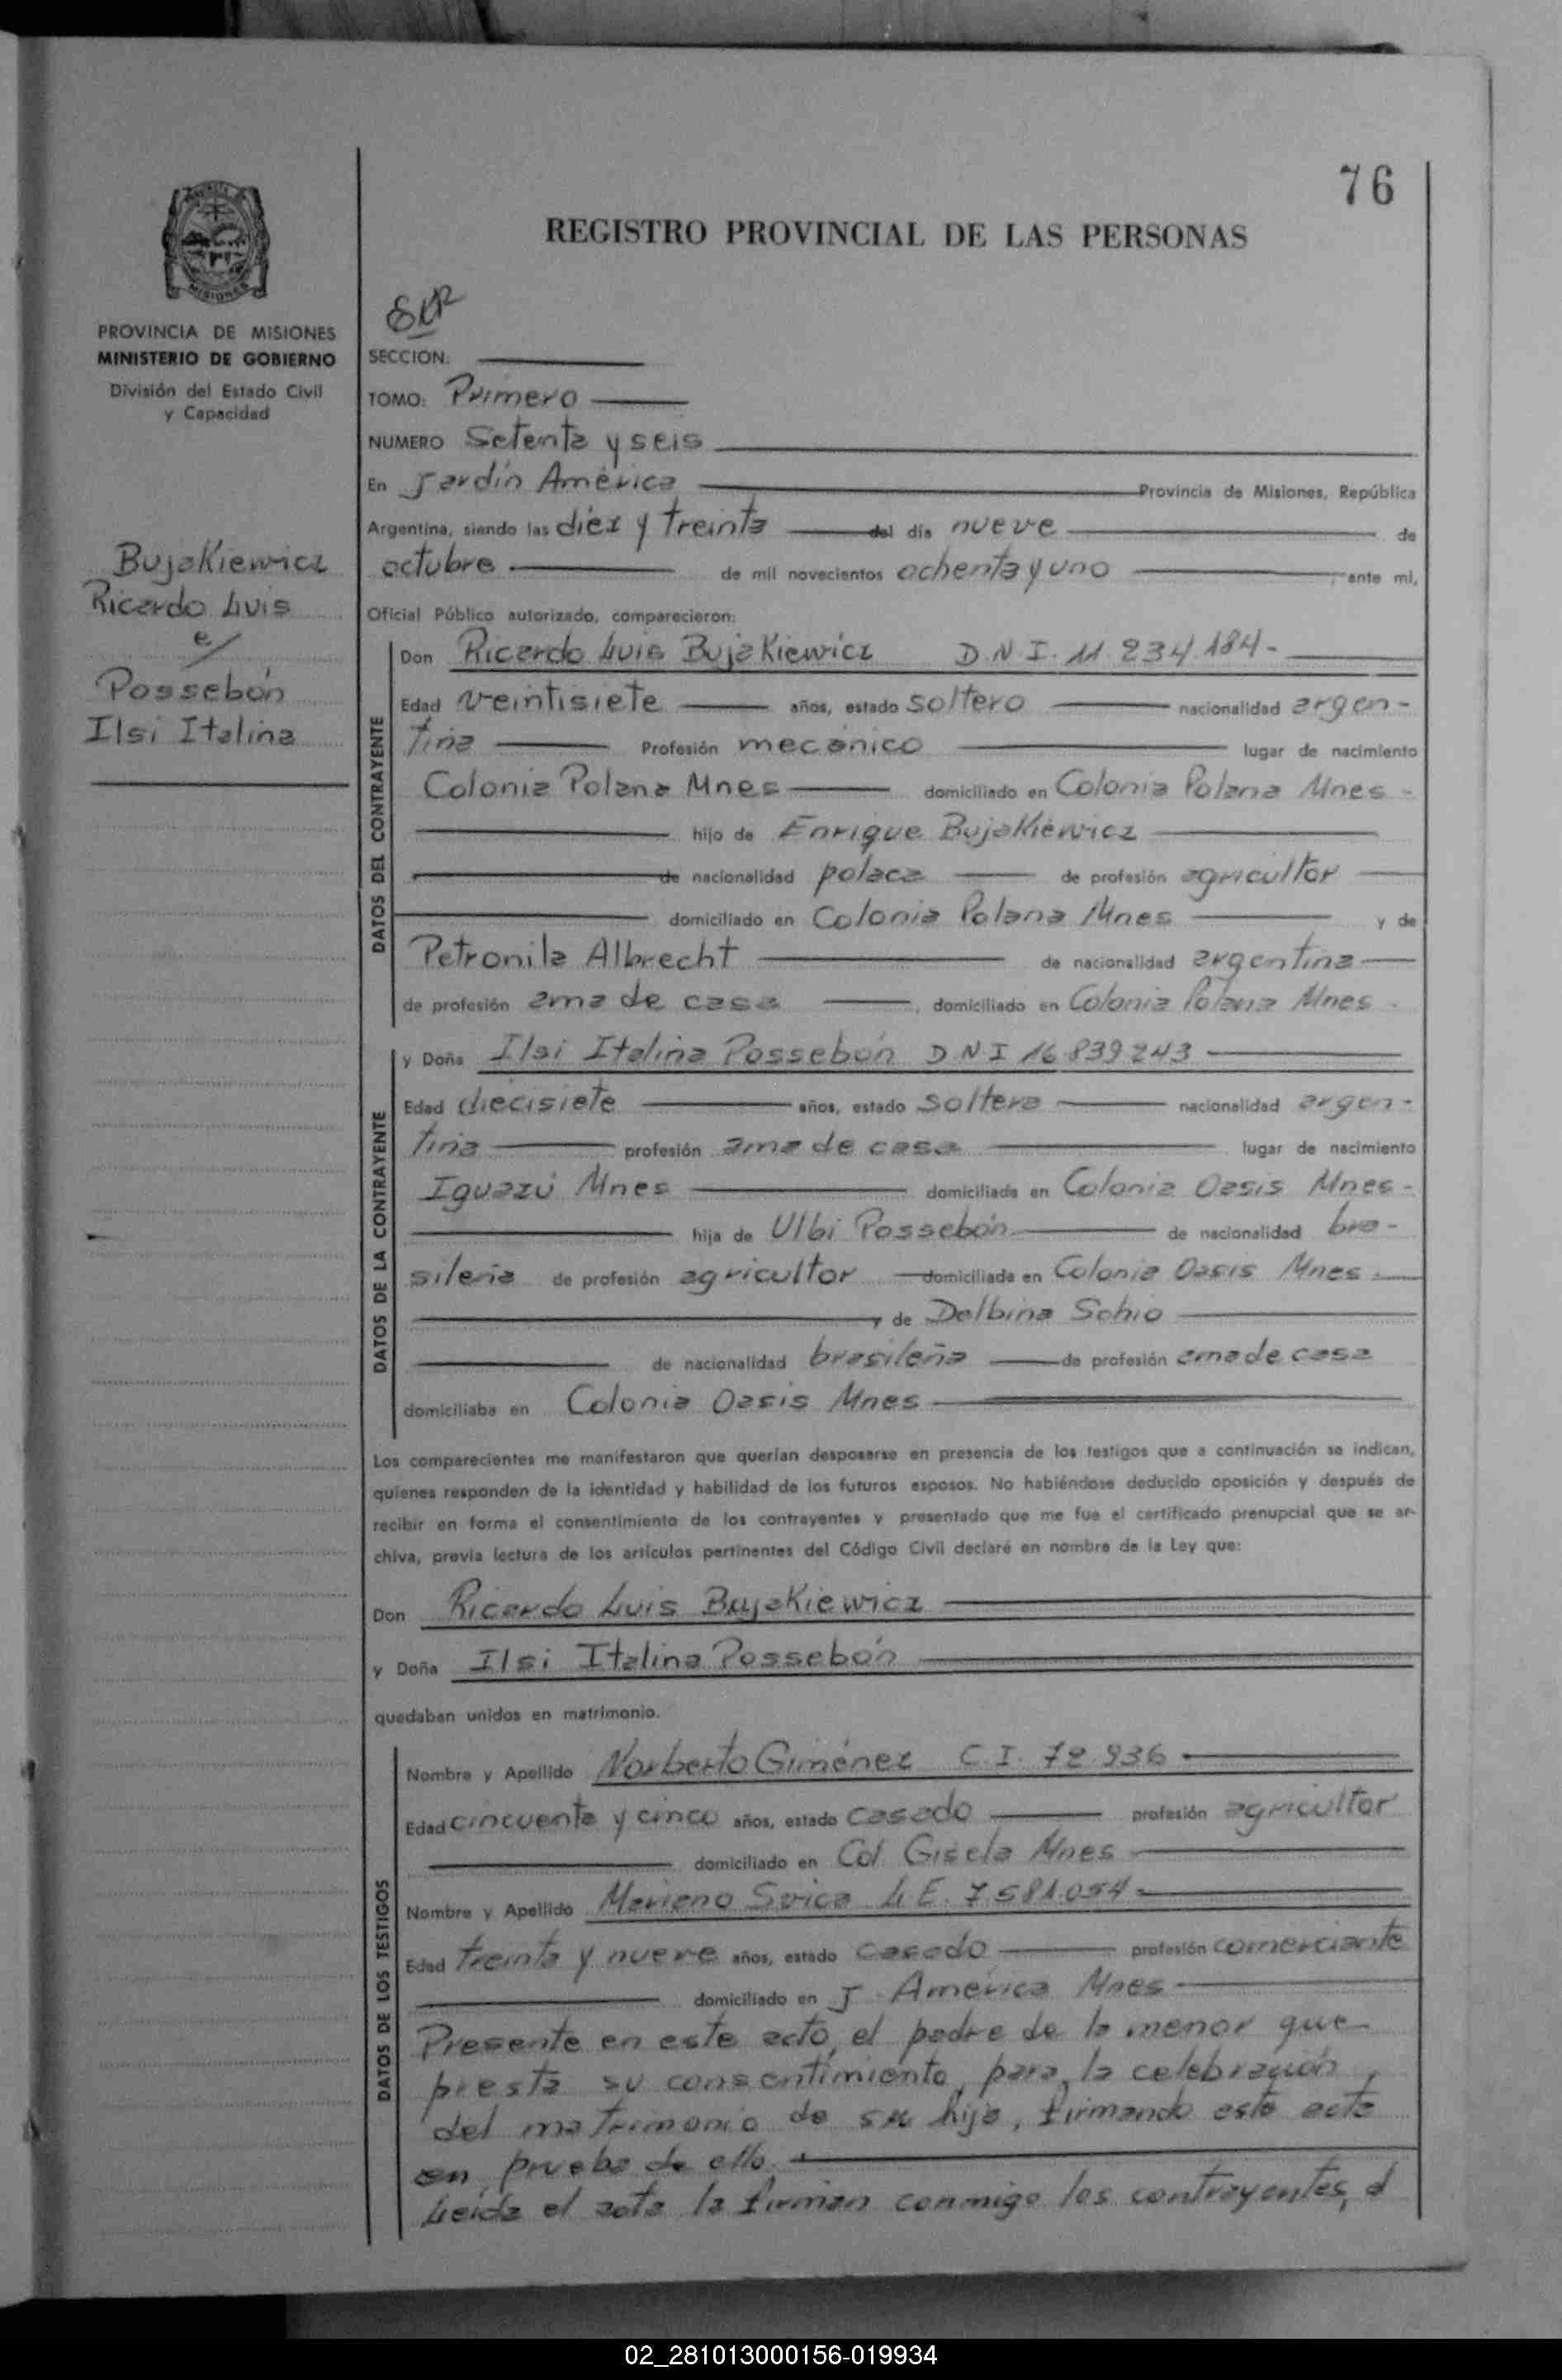 76
REGISTRO PROVINCIAL DE LAS PERSONAS
MISIONES
PROVINCIA DE MISIONES
MINISTERIO DE GOBIERNO
División del Estado Civil
y Capacidad
Bujakiewicz
Ricardo Luis
c/
Possebón
Ilsi Italina
SECCION:
TOMO: Primero
NUMERO Setenta y seis
En Jardín América Provincia de Misiones, República
Argentina, siendo las diez y treinta del día nueve de
octubre de mil novecientos ochenta y uno ante mi,
Oficial Público autorizado, comparecieron:
DATOS DEL CONTRAYENTE
Don Ricardo Luis Bujakiewicz D.N.I. 11.234.184-
Edad veintisiete años, estado soltero nacionalidad argen-
tina Profesión mecánico lugar de nacimiento
Colonia Polana Mnes domiciliado en Colonia Polana Mnes-
hijo de Enrique Bujakiewicz
de nacionalidad polaca de profesión agricultor
domiciliado en Colonia Polana Mnes y de
Petronila Albrecht de nacionalidad argentina
de profesión ama de casa, domiciliado en Colonia Polana Mnes-
DATOS DE LA CONTRAYENTE
y Doña Ilsi Italina Possebón D.N.I 16.839.243
Edad diecisiete años, estado soltera nacionalidad argen-
tina profesión ama de casa lugar de nacimiento
Iguazú Mnes domiciliada en Colonia Oasis Mnes-
hija de Ulbi Possebón de nacionalidad bra-
sileña de profesión agricultor domiciliado en Colonia Oasis Mnes
y de Delbina Schio
de nacionalidad brasileña de profesión ama de casa
domiciliaba en Colonia Oasis Mnes
Los comparecientes me manifestaron que querían desposarse en presencia de los testigos que a continuación se indican,
quienes responden de la identidad y habilidad de los futuros esposos. No habiéndose deducido oposición y después de
recibir en forma el consentimiento de los contrayentes y presentado que me fue el certificado prenupcial que se ar-
chiva, previa lectura de los artículos pertinentes del Código Civil declaré en nombre de la Ley que:
Don Ricardo Luis Bujakiewicz
y Doña Ilsi Italina Possebón
quedaban unidos en matrimonio.
DATOS DE LOS TESTIGOS
Nombre y Apellido Norberto Giménez C.I. 72.936
Edad cincuenta y cinco años, estado casado profesión agricultor
domiciliado en Col Gisela Mnes
Nombre y Apellido Mariano L.E. 7.581.054-
Edad treinta y nueve años, estado casado profesión comerciante
domiciliado en J. América Mnes
Presente en este acto, el padre de la menor que
presta su consentimiento, para la celebración
del matrimonio de su hija, firmando esta acta
en prueba de ello.
Leída el acta la firman conmigo los contrayentes, el
02_281013000156-019934